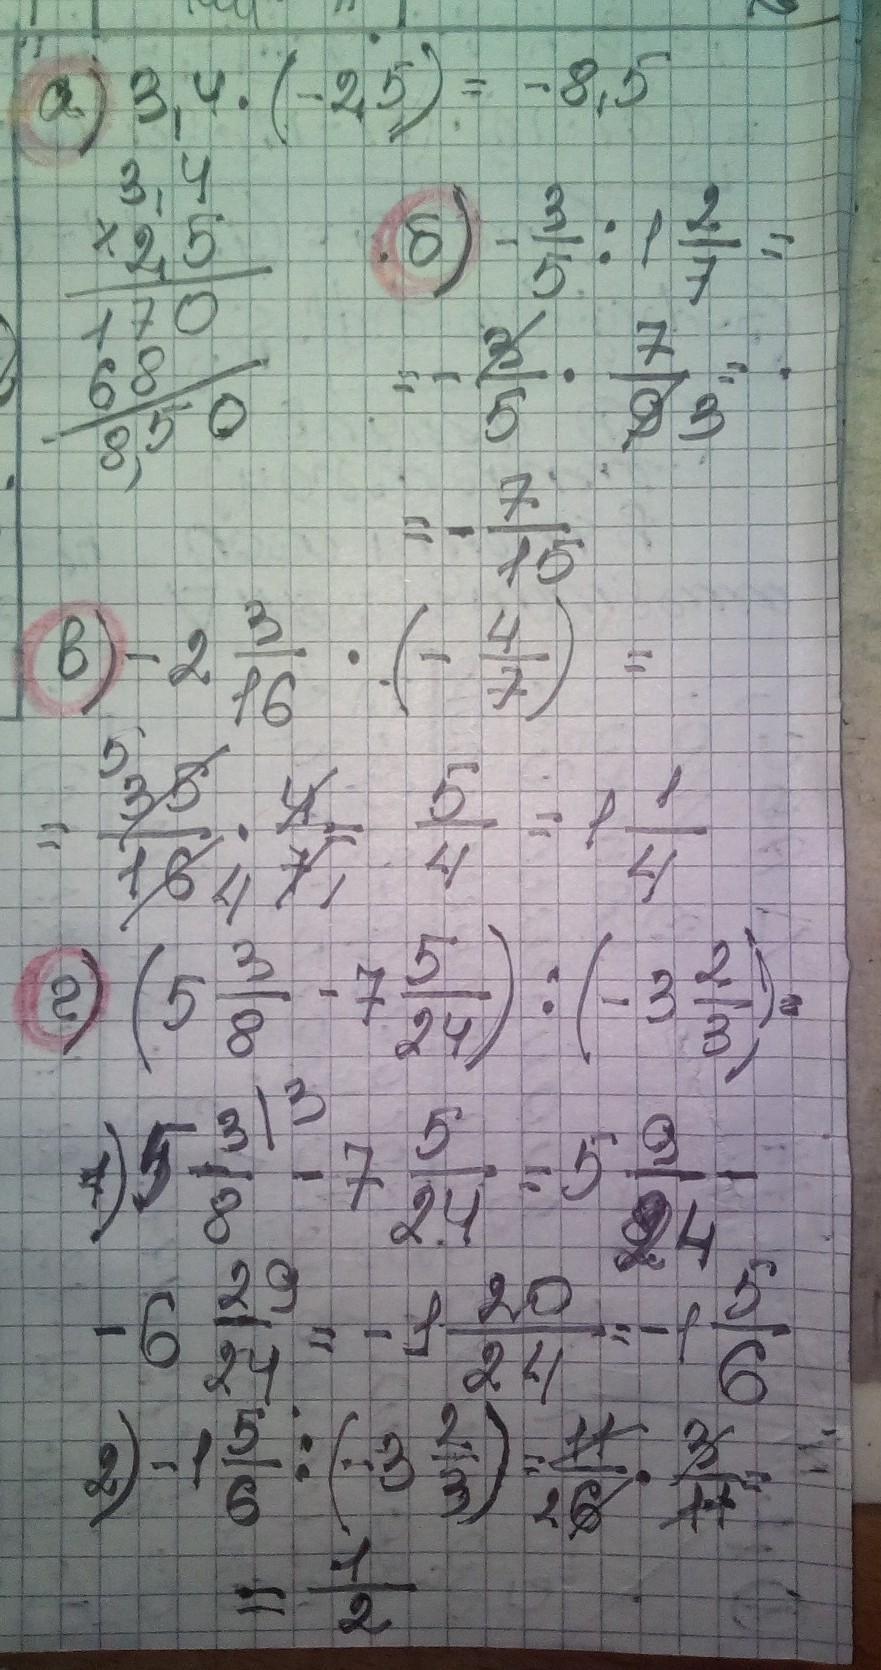 а) 3,4 · (-2,5) = -8,5
3,4
× 2,5
170
68
8,50
б) - 3/5 : 1 2/7 =
= - 3/5 · 7/9 3 =
= - 7/15
в) - 2 3/16 · (- 4/7) =
= 5 35/16 4 · 4/7 1 = 5/4 = 1 1/4
г) (5 3/8 - 7 5/24) : (- 3 2/3) =
1) 5 3/8 3 - 7 5/24 = 5 9/24 -
- 6 29/24 = - 1 20/24 = - 1 5/6
2) - 1 5/6 : (- 3 2/3) = 11/2 6 · 3/11 =
= 1/2